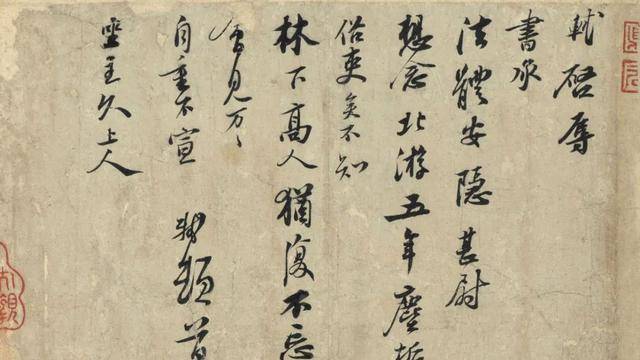 軾啓辱
書承
法體安隱甚尉
想念北游五年塵垢
俗吏矣不知
林下高人猶復不忘
會見万〻
自重不宣 軾頓首
坐主久上人